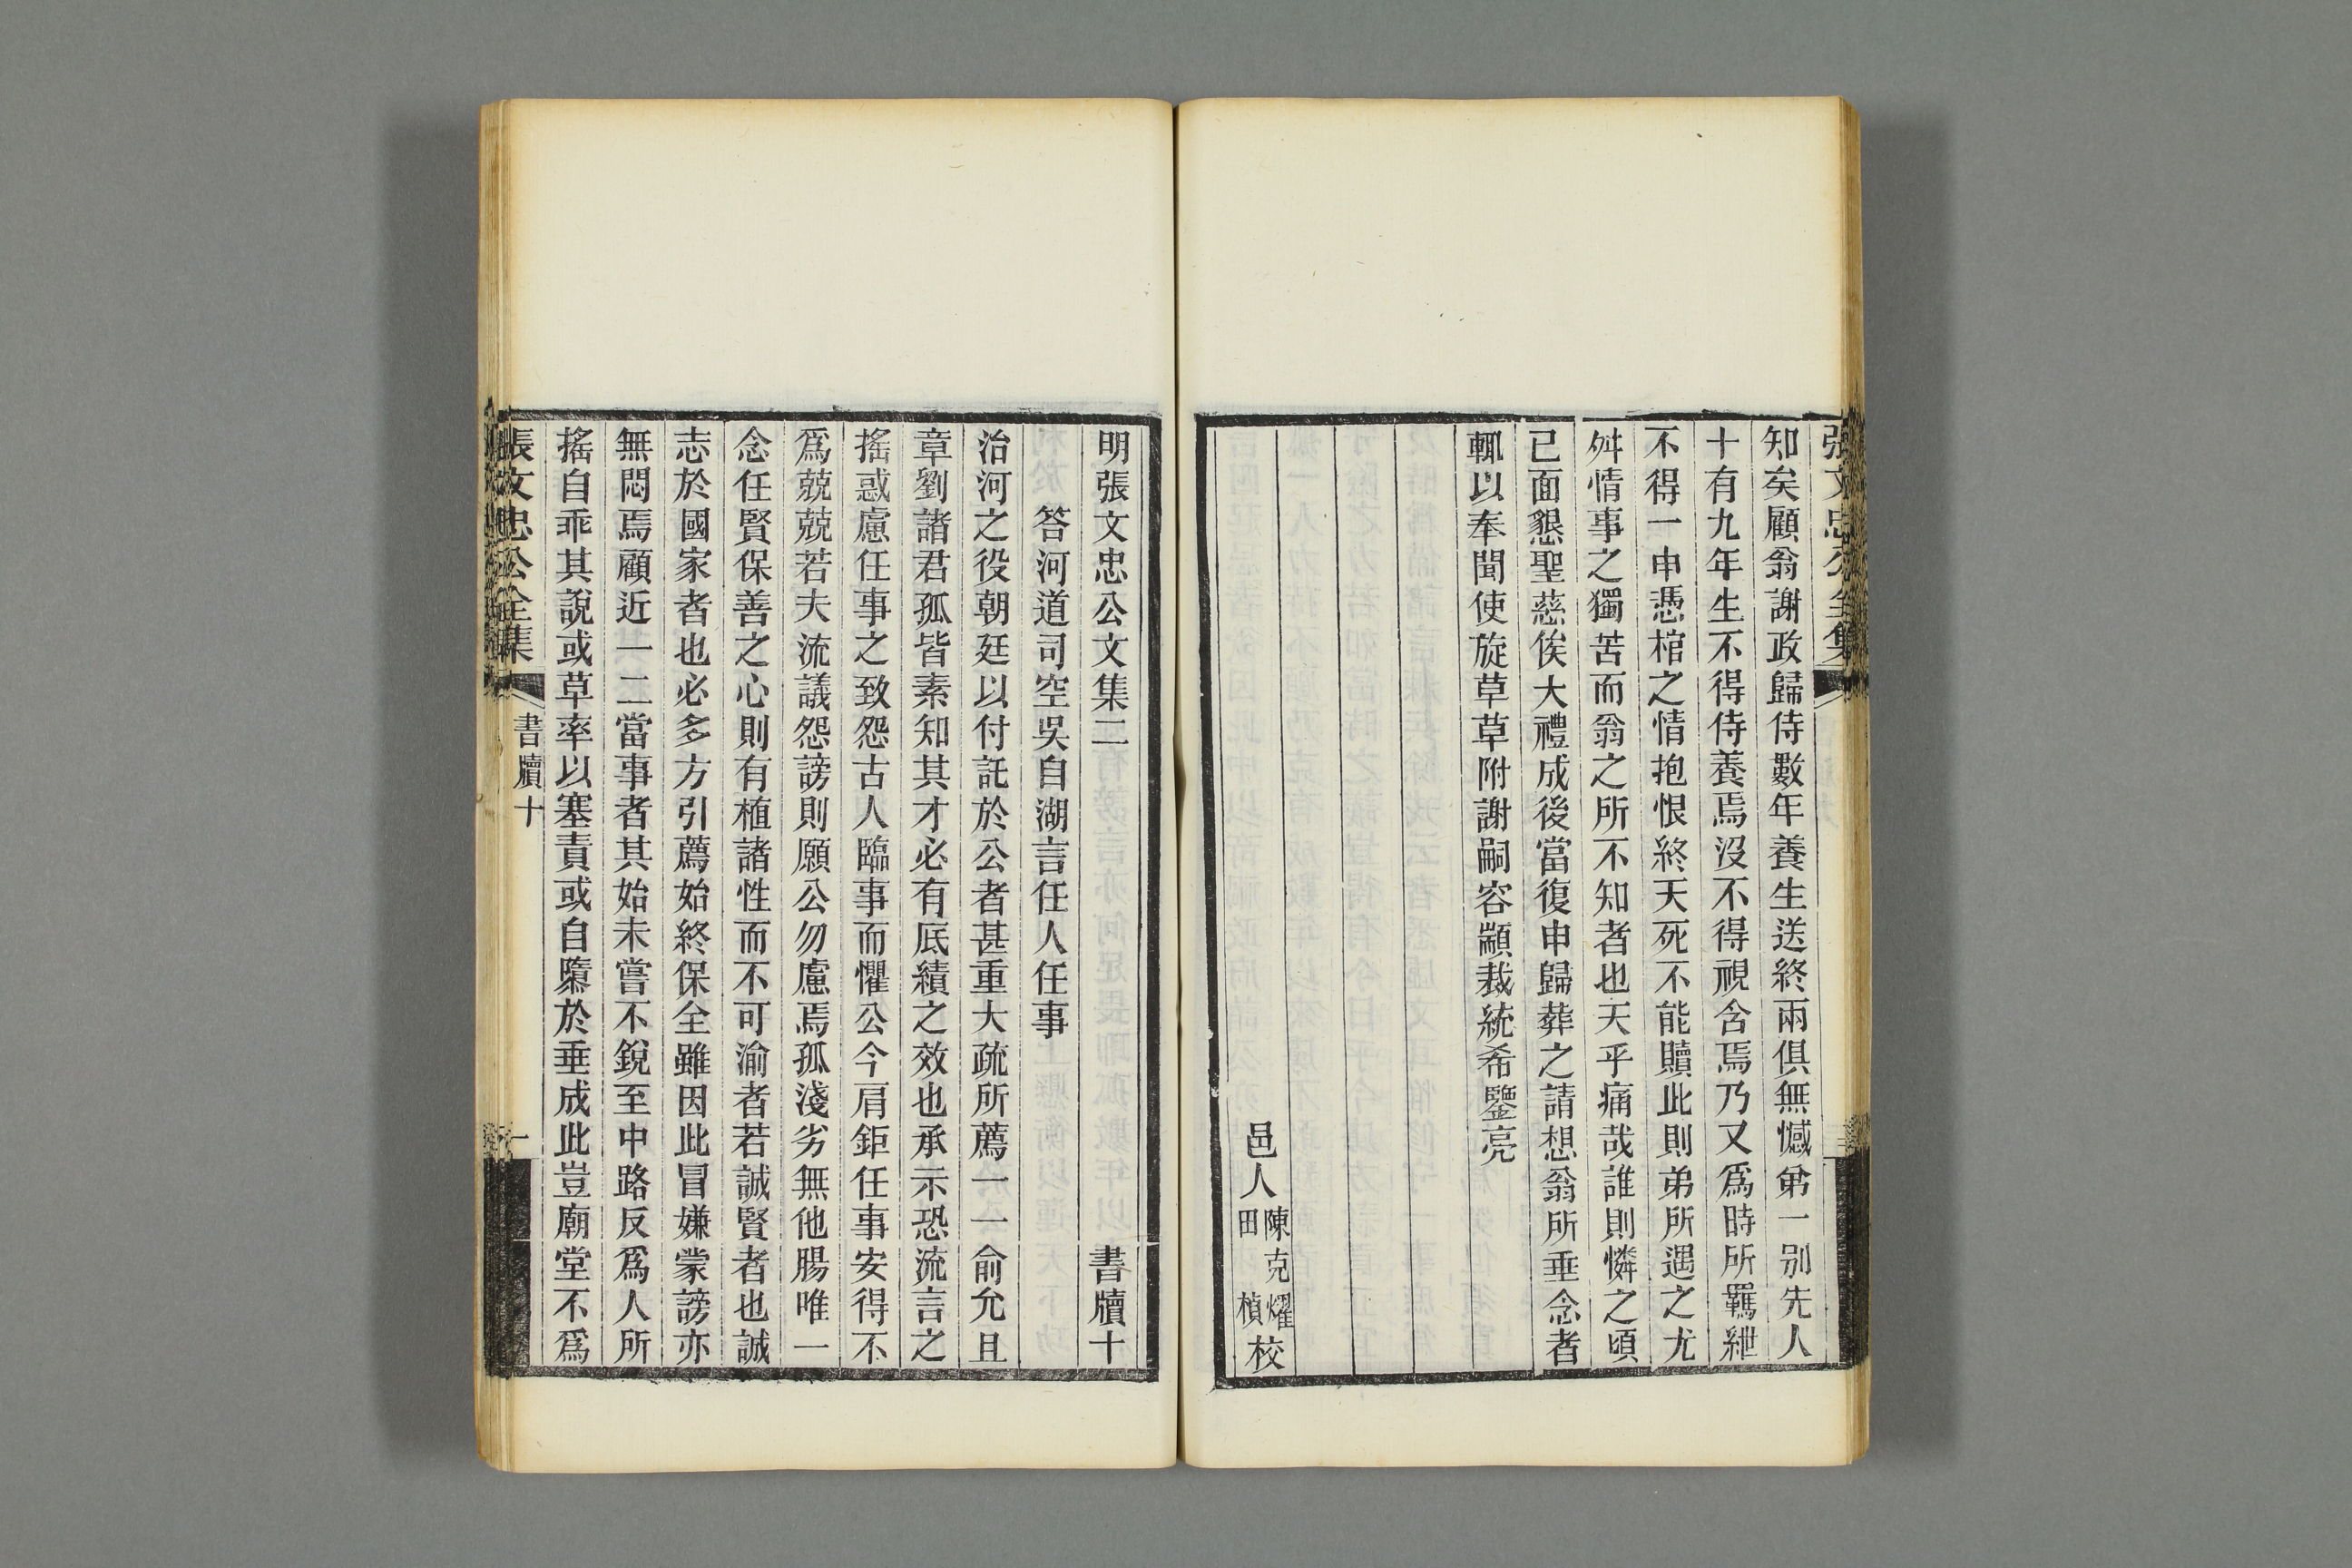 張文忠公全集
知矣顧翁謝政歸侍數年養生送終兩俱無憾弟一别先人
十有九年生不得侍養焉沒不得視含焉乃又爲時所羈紲
不得一申憑棺之情抱恨終天死不能贖此則弟所遇之尤
舛情事之獨苦而翁之所不知者也天乎痛哉誰則憐之頃
已面懇聖慈俟大禮成後當復申歸葬之請想翁所垂念者
輒以奉聞使旋草草附謝嗣容顓裁統希鑒亮
邑人陳克燿田楨校
明張文忠公文集二 書牘十
答河道司空吳自湖言任人任事
治河之役朝廷以付託於公者甚重大疏所薦一一俞允且
章劉諸君孤皆素知其才必有底績之效也承示恐流言之
搖惑慮任事之致怨古人臨事而懼公今肩鉅任事安得不
爲兢兢若夫流議怨謗則願公勿慮焉孤淺劣無他腸唯一
念任賢保善之心則有植諸性而不可渝者若誠賢者也誠
志於國家者也必多方引薦始終保全雖因此冒嫌蒙謗亦
無悶焉顧近一二當事者其始未嘗不銳至中路反爲人所
搖自乖其說或草率以塞責或自隳於垂成此豈廟堂不爲
張文忠公全集 書牘十 一